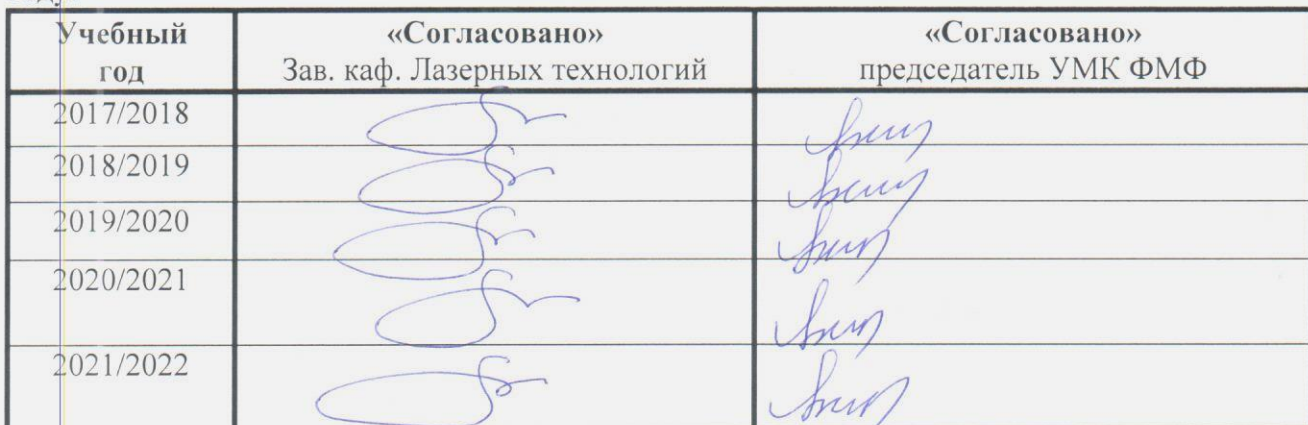 Учебный год
«Согласовано»
Зав. каф. Лазерных технологий
«Согласовано»
председатель УМК ФМФ
2017/2018
2018/2019
2019/2020
2020/2021
2021/2022